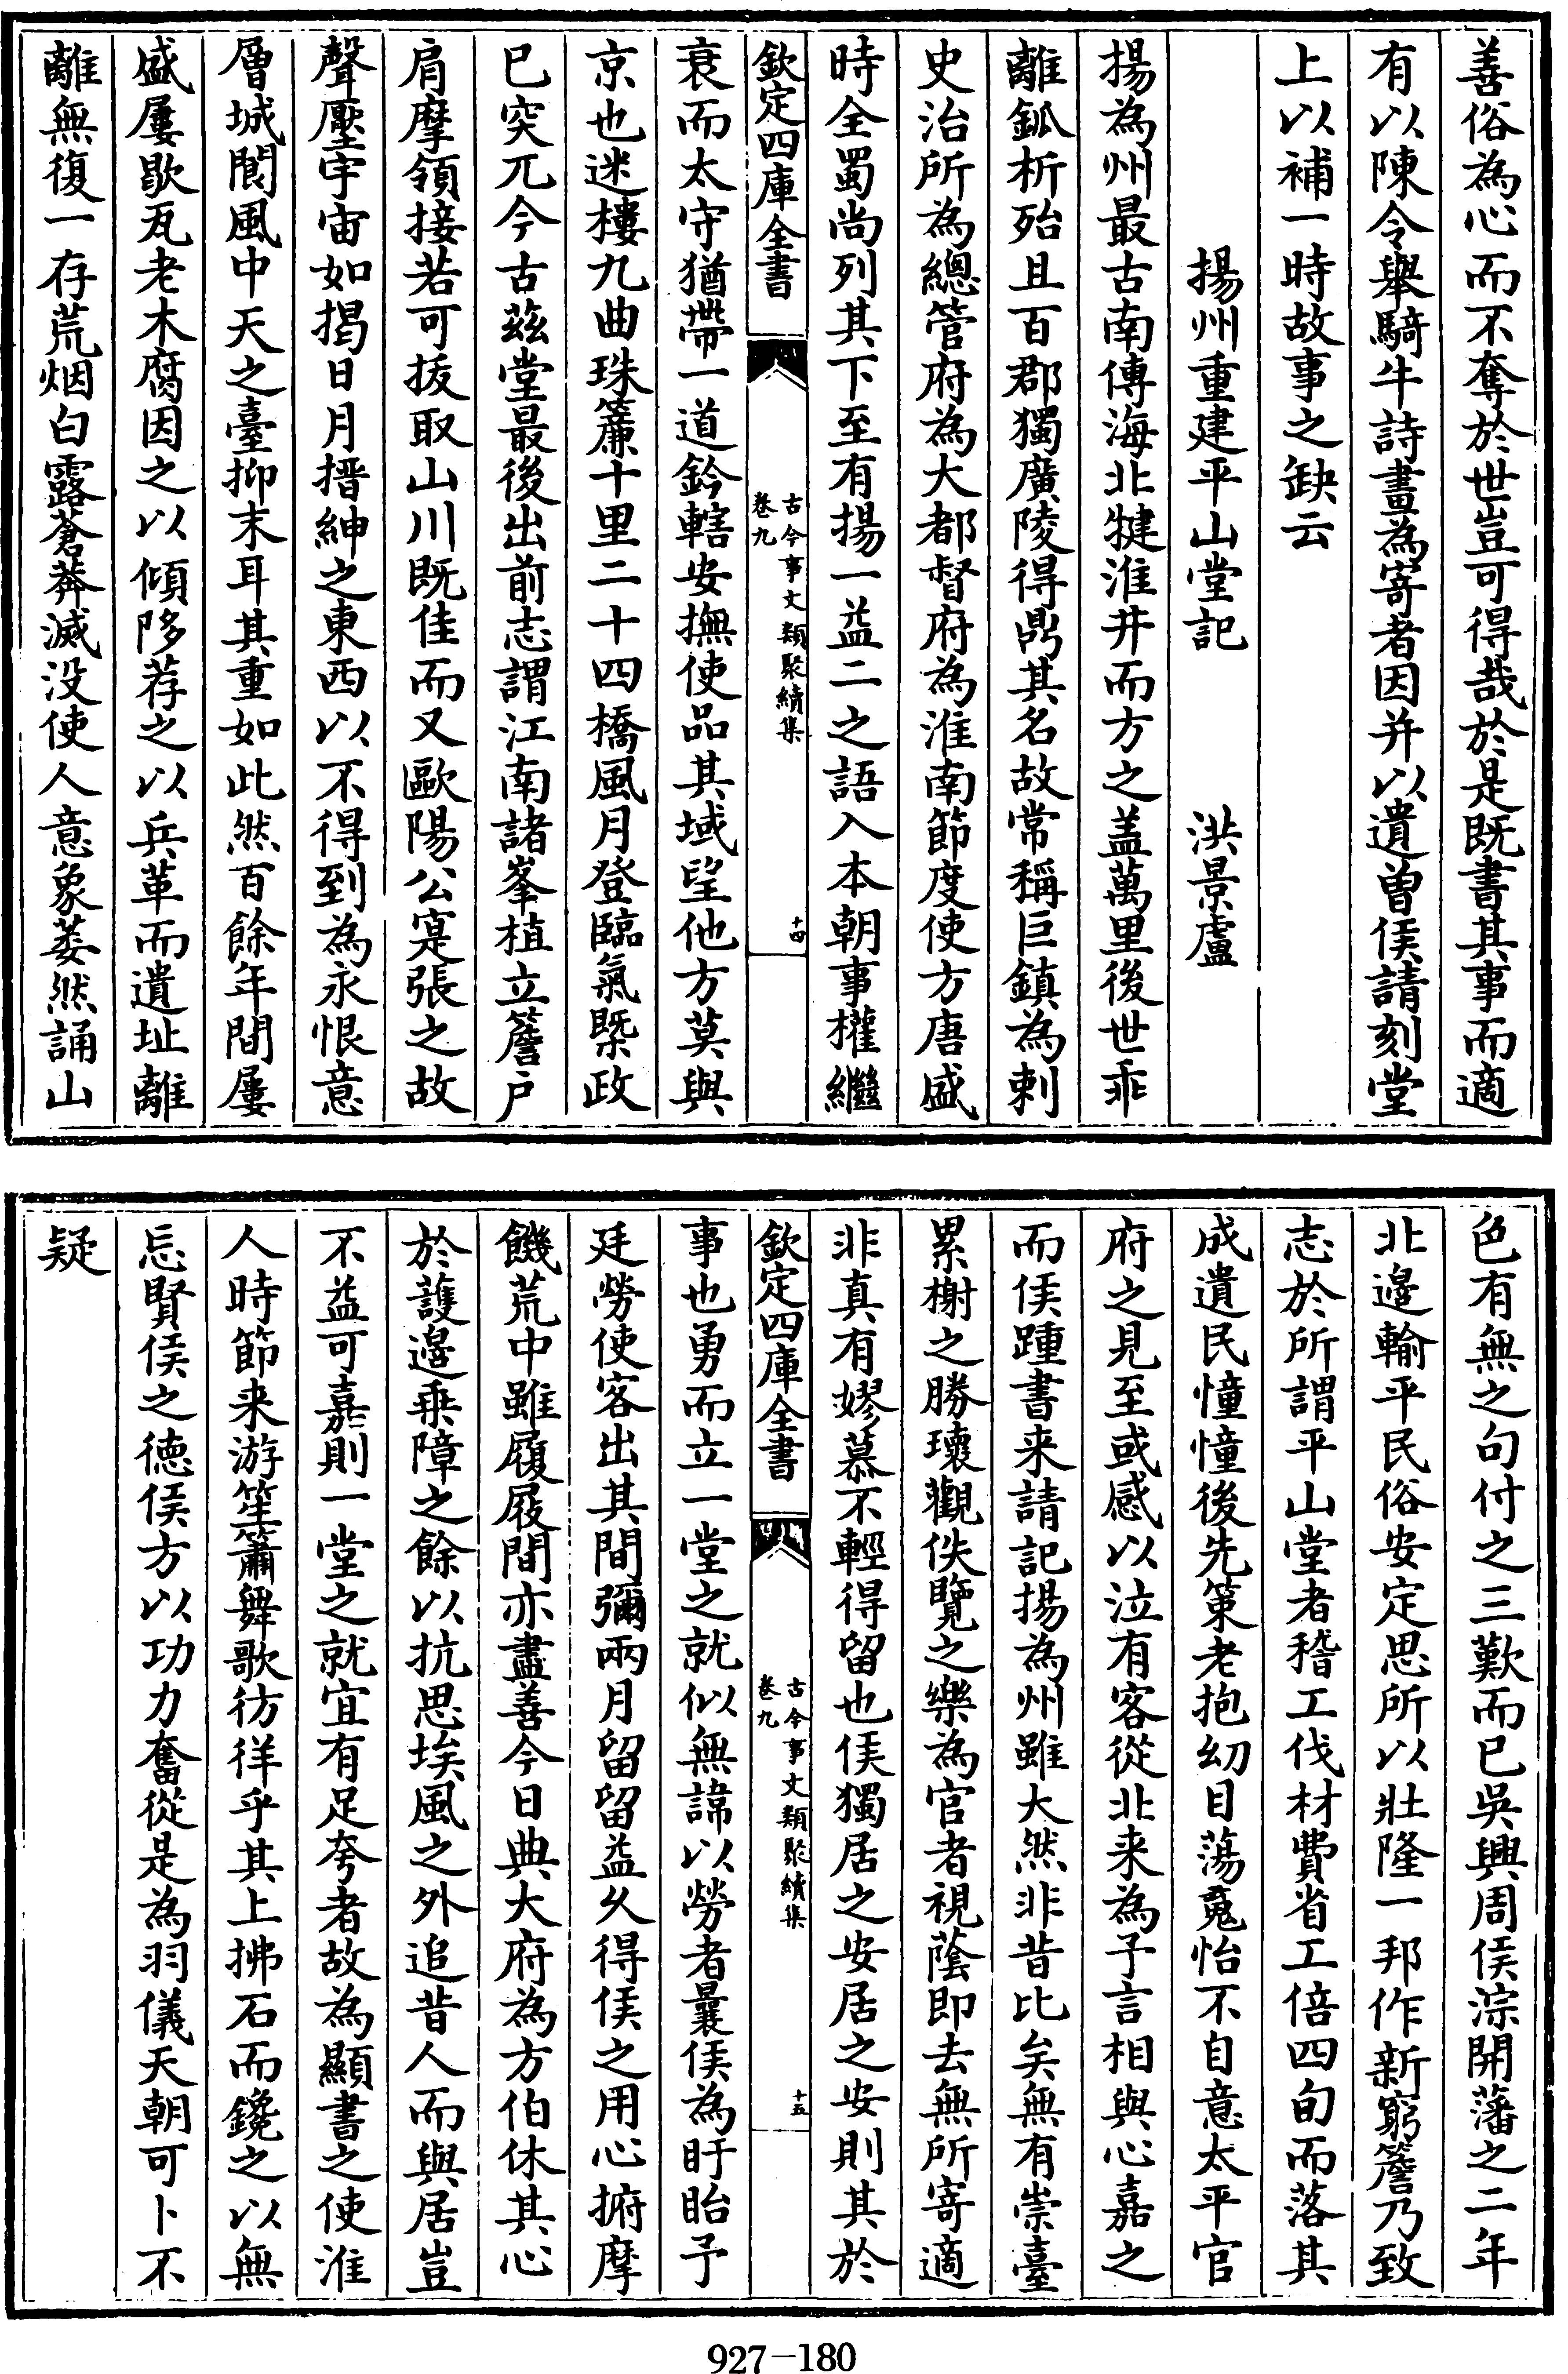 善俗為心而不奪於世豈可得哉於是既書其事而適
有以陳令舉騎牛詩畫為寄者因并以遺曾侯請刻堂
上以補一時故事之缺云
揚州重建平山堂記 洪景盧
揚為州最古南傅海北揵淮井而方之盖萬里後世乖
離鈲析殆且百郡獨廣陵得鼎其名故常稱巨鎮為剌
史治所為總管府為大都督府為淮南節度使方唐盛
時全蜀尚列其下至有揚一益二之語入本朝事權繼
欽定四庫全書 古今事文類聚續集 卷九 十四
衰而太守猶帶一道鈐轄安撫使品其域望他方莫與
京也迷樓九曲珠簾十里二十四橋風月登臨氣槩政
已突兀今古兹堂最後出前志謂江南諸峯植立簷户
肩摩領接若可拔取山川既佳而又歐陽公寔張之故
聲壓宇宙如揭日月搢紳之東西以不得到為永恨意
層城閬風中天之臺抑末耳其重如此然百餘年間屢
盛屢歇瓦老木腐因之以傾陊荐之以兵革而遺址離
離無復一存荒烟白露蒼莽滅没使人意象萎然誦山
色有無之句付之三歎而已吳興周侯淙開藩之二年
北邉輸平民俗安定思所以壯隆一邦作新窮簷乃致
志於所謂平山堂者稽工伐材費省工倍四旬而落其
成遺民憧憧後先策老抱幼目蕩䰟怡不自意太平官
府之見至或感以泣有客從北来為予言相與心嘉之
而侯踵書来請記揚為州雖大然非昔比矣無有崇臺
累榭之勝瓌觀佚覽之樂為官者視蔭即去無所寄適
非真有嫪慕不輕得留也侯獨居之安居之安則其於
欽定四庫全書 古今事文類聚續集 卷九 十五
事也勇而立一堂之就似無諱以勞者曩侯為盱眙予
廷勞使客出其間彌兩月留留益乆得侯之用心㨽摩
饑荒中雖履屐間亦盡善今日典大府為方伯休其心
於護邉乗障之餘以抗思埃風之外追昔人而與居豈
不益可嘉則一堂之就宜有足夸者故為顯書之使淮
人時節来游笙簫舞歌彷徉乎其上拂石而鑱之以無
忘賢侯之德侯方以功力奮從是為羽儀天朝可卜不
疑
927-180